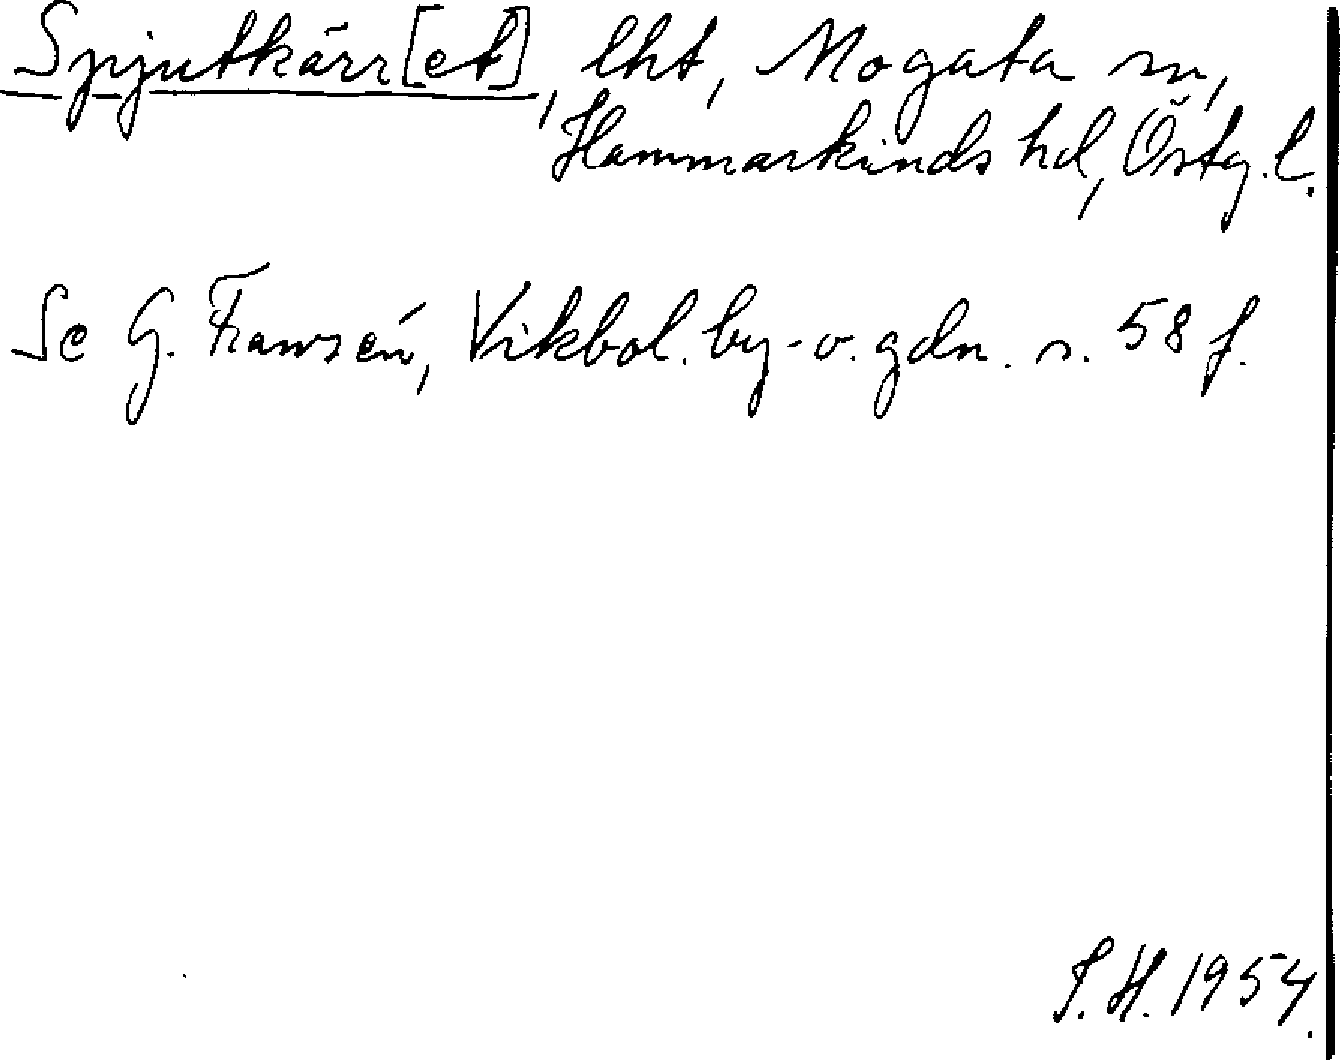 Spjutkärr[et], lht, Mogata sn,
Hammarkinds hd, Östg.l.
Se G. Franzén, Vikbol. by- o. gdn. s. 58 f.
S.H. 1954.